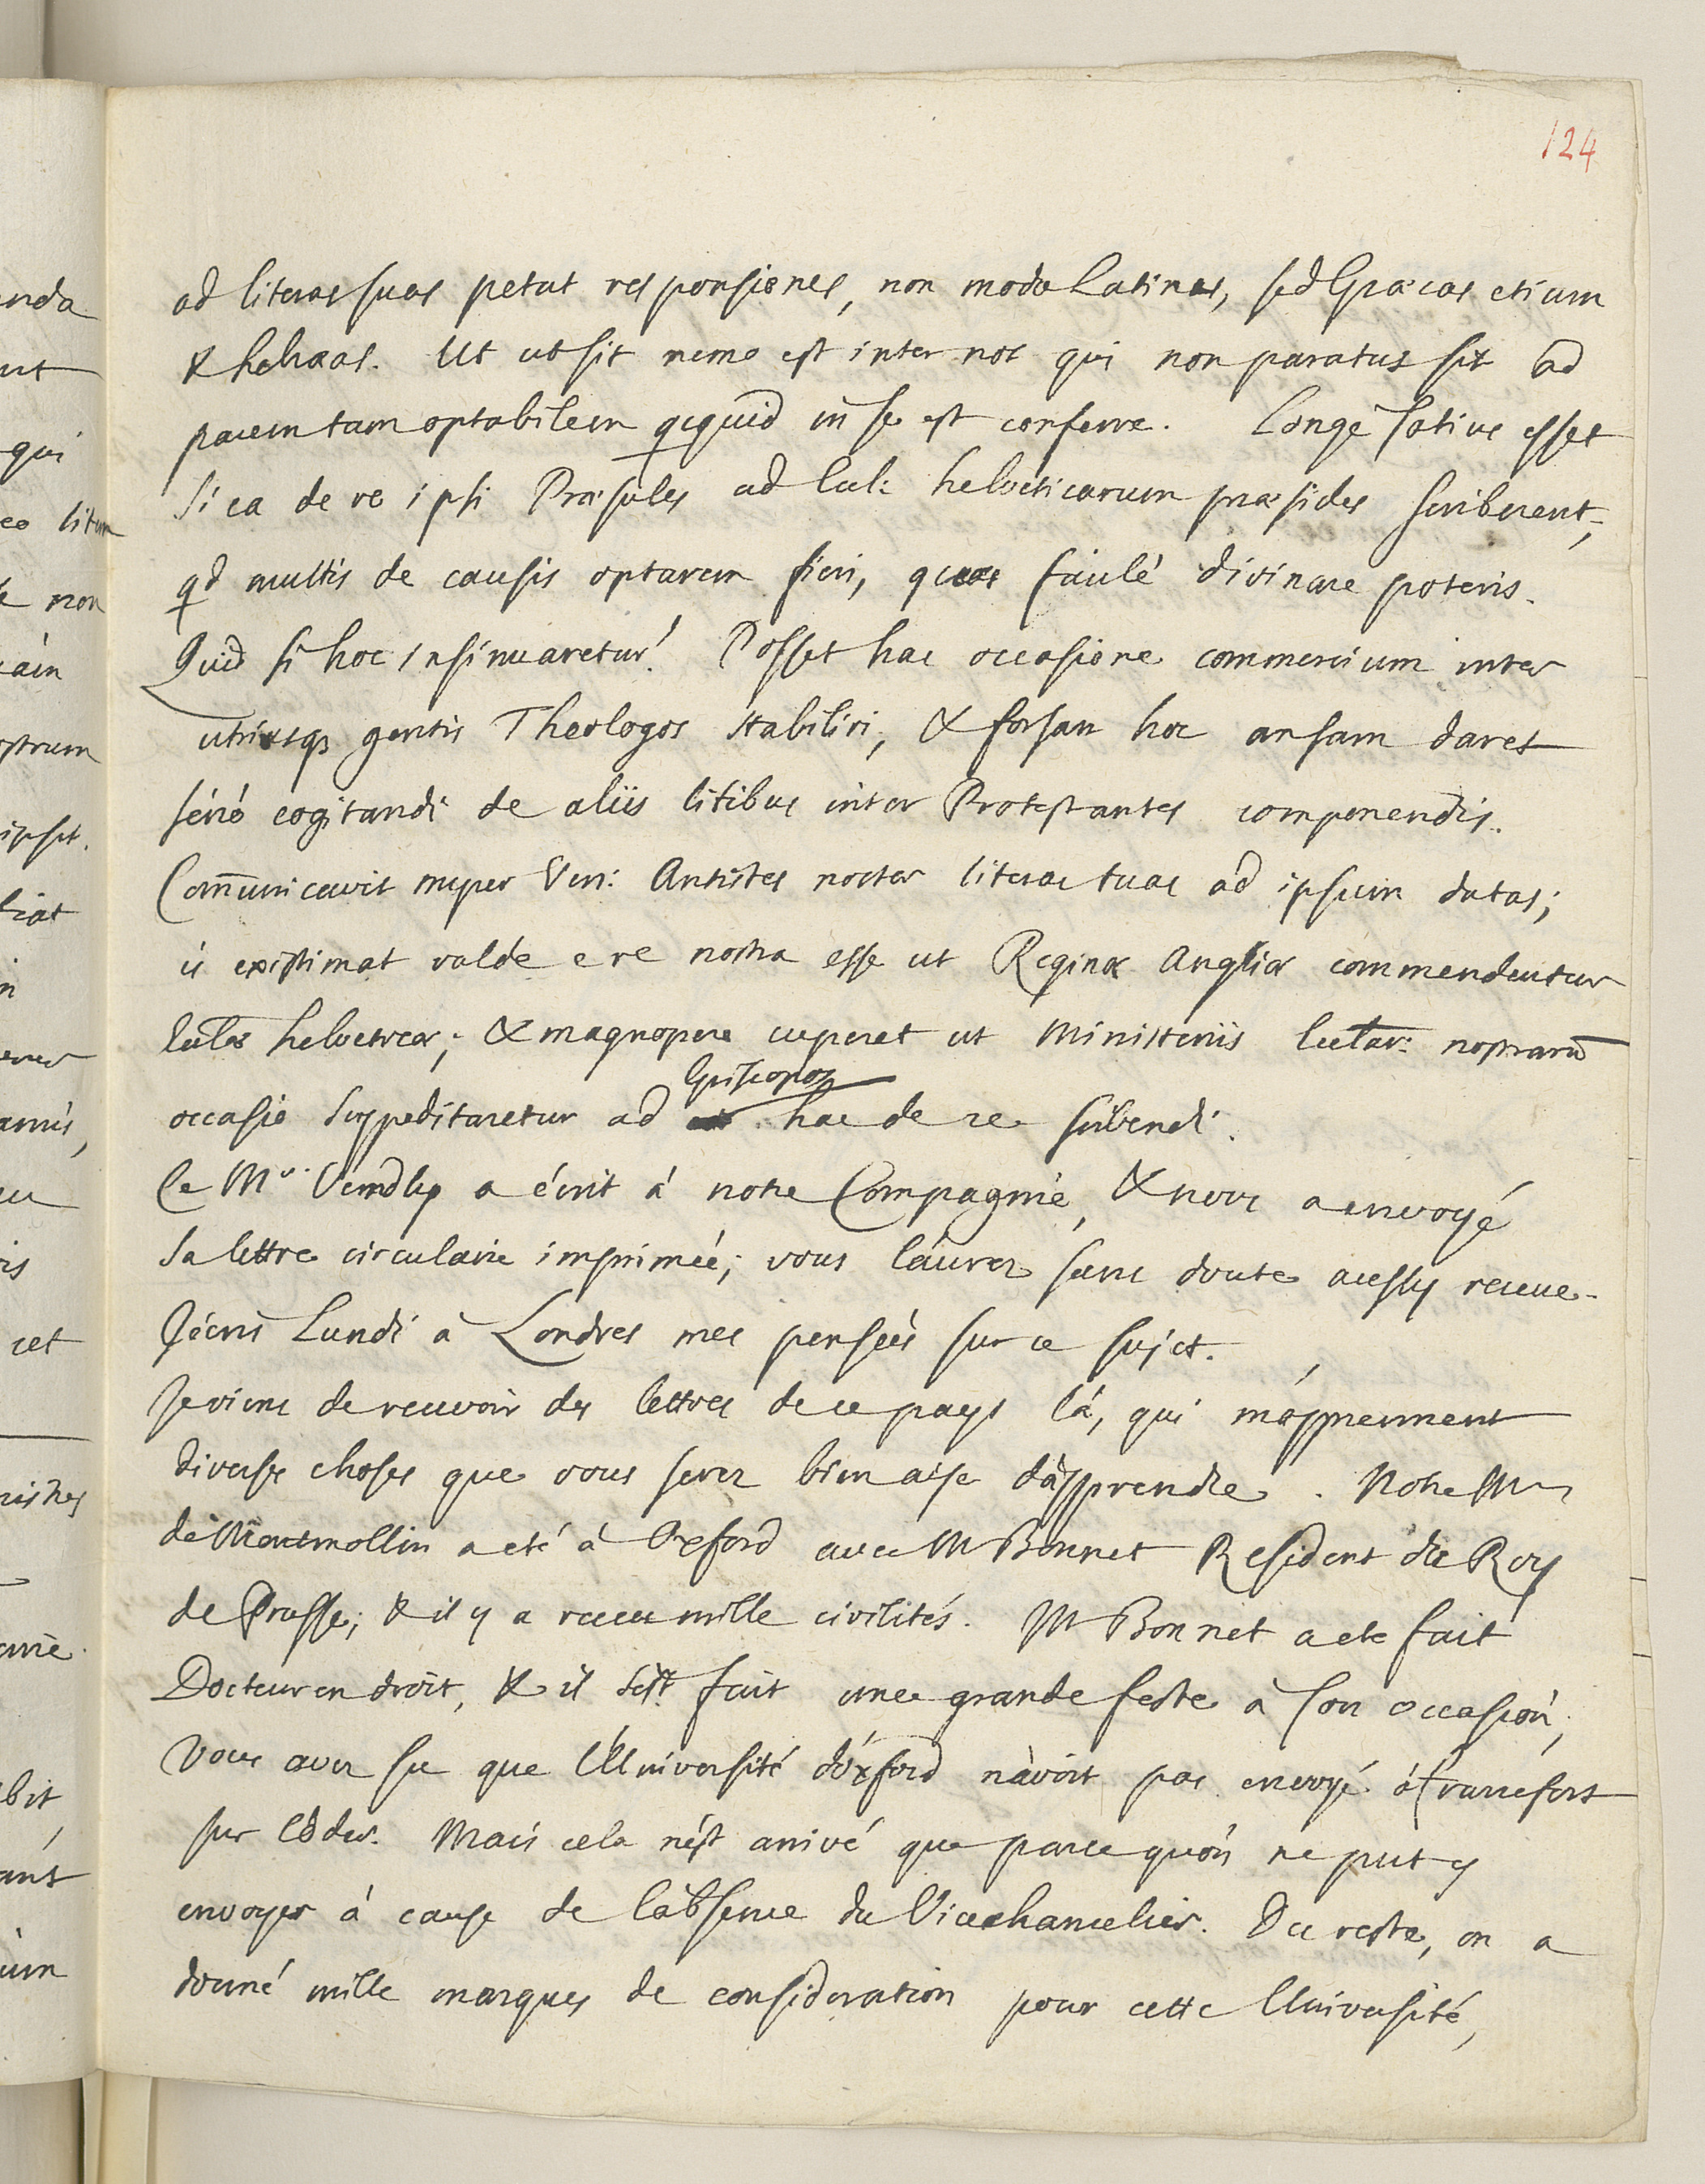 124
ad literas suas petat responsiones, non modo Latinas, sed Græcas etiam
& hebræas. Ut ut sit nemo est inter nos qui non paratus sit ad
pacem tam optabilem qcquid in se est conferre. Longè satius esset
si ea de re ipsi Præsules ad Eccl: helveticarum præsides scriberent;
qd multis de causis optarem fieri, quas facilè divinare poteris.
Quid si hoc insinuaretur? Posset hac occasione commercium inter
utriusq; gentis Theologos stabiliri, & forsan hoc ansam daret
sério cogitandi de aliis litibus inter Protestantes componendis.
Com̄unicavit nuper Ven: Antistes noster literas tuas ad ipsum datas;
is existimat valde e re nostra esse ut Reginæ Angliæ commendentur
Eccles helveticæ; & magnopere cuperet ut Ministeriis Ecclar: nostrarū
Episcopos
occasio suppeditaretur ad hac de re scribendi.
Ce Mr. a écrit à notre Compagnie, & nous a envoyé
sa lettre circulaire imprimée; vous l'aurez sans doute aussy receue.
J'écris Lundi à Londres mes pensées sur ce sujet.
Je viens de recevoir des lettres de ce pays là, qui m'apprennent
diverses choses que vous serez bien aise d'apprendre. Notre Mr
de Montmollin a eté à Oxford avec Mr Bonnet Resident du Roy
de Prusse; & il y a receu mille civilités. Mr Bonnet a ete fait
Docteur en droit, & il s'est fait une grande feste à son occasion;
Vous avez su que l'Université d'Oxford n'avoit pas envoyé à Francfort
sur l'Oder. Mais cela n'est arrivé que parce qu'on ne put y
envoyer à cause de l'absence du Vicechancelier. Du reste, on a
donné mille marques de consideration pour cette Université,
nda
ut
qui
eo litem
non
ostrum
ipsit.
cet
bit,